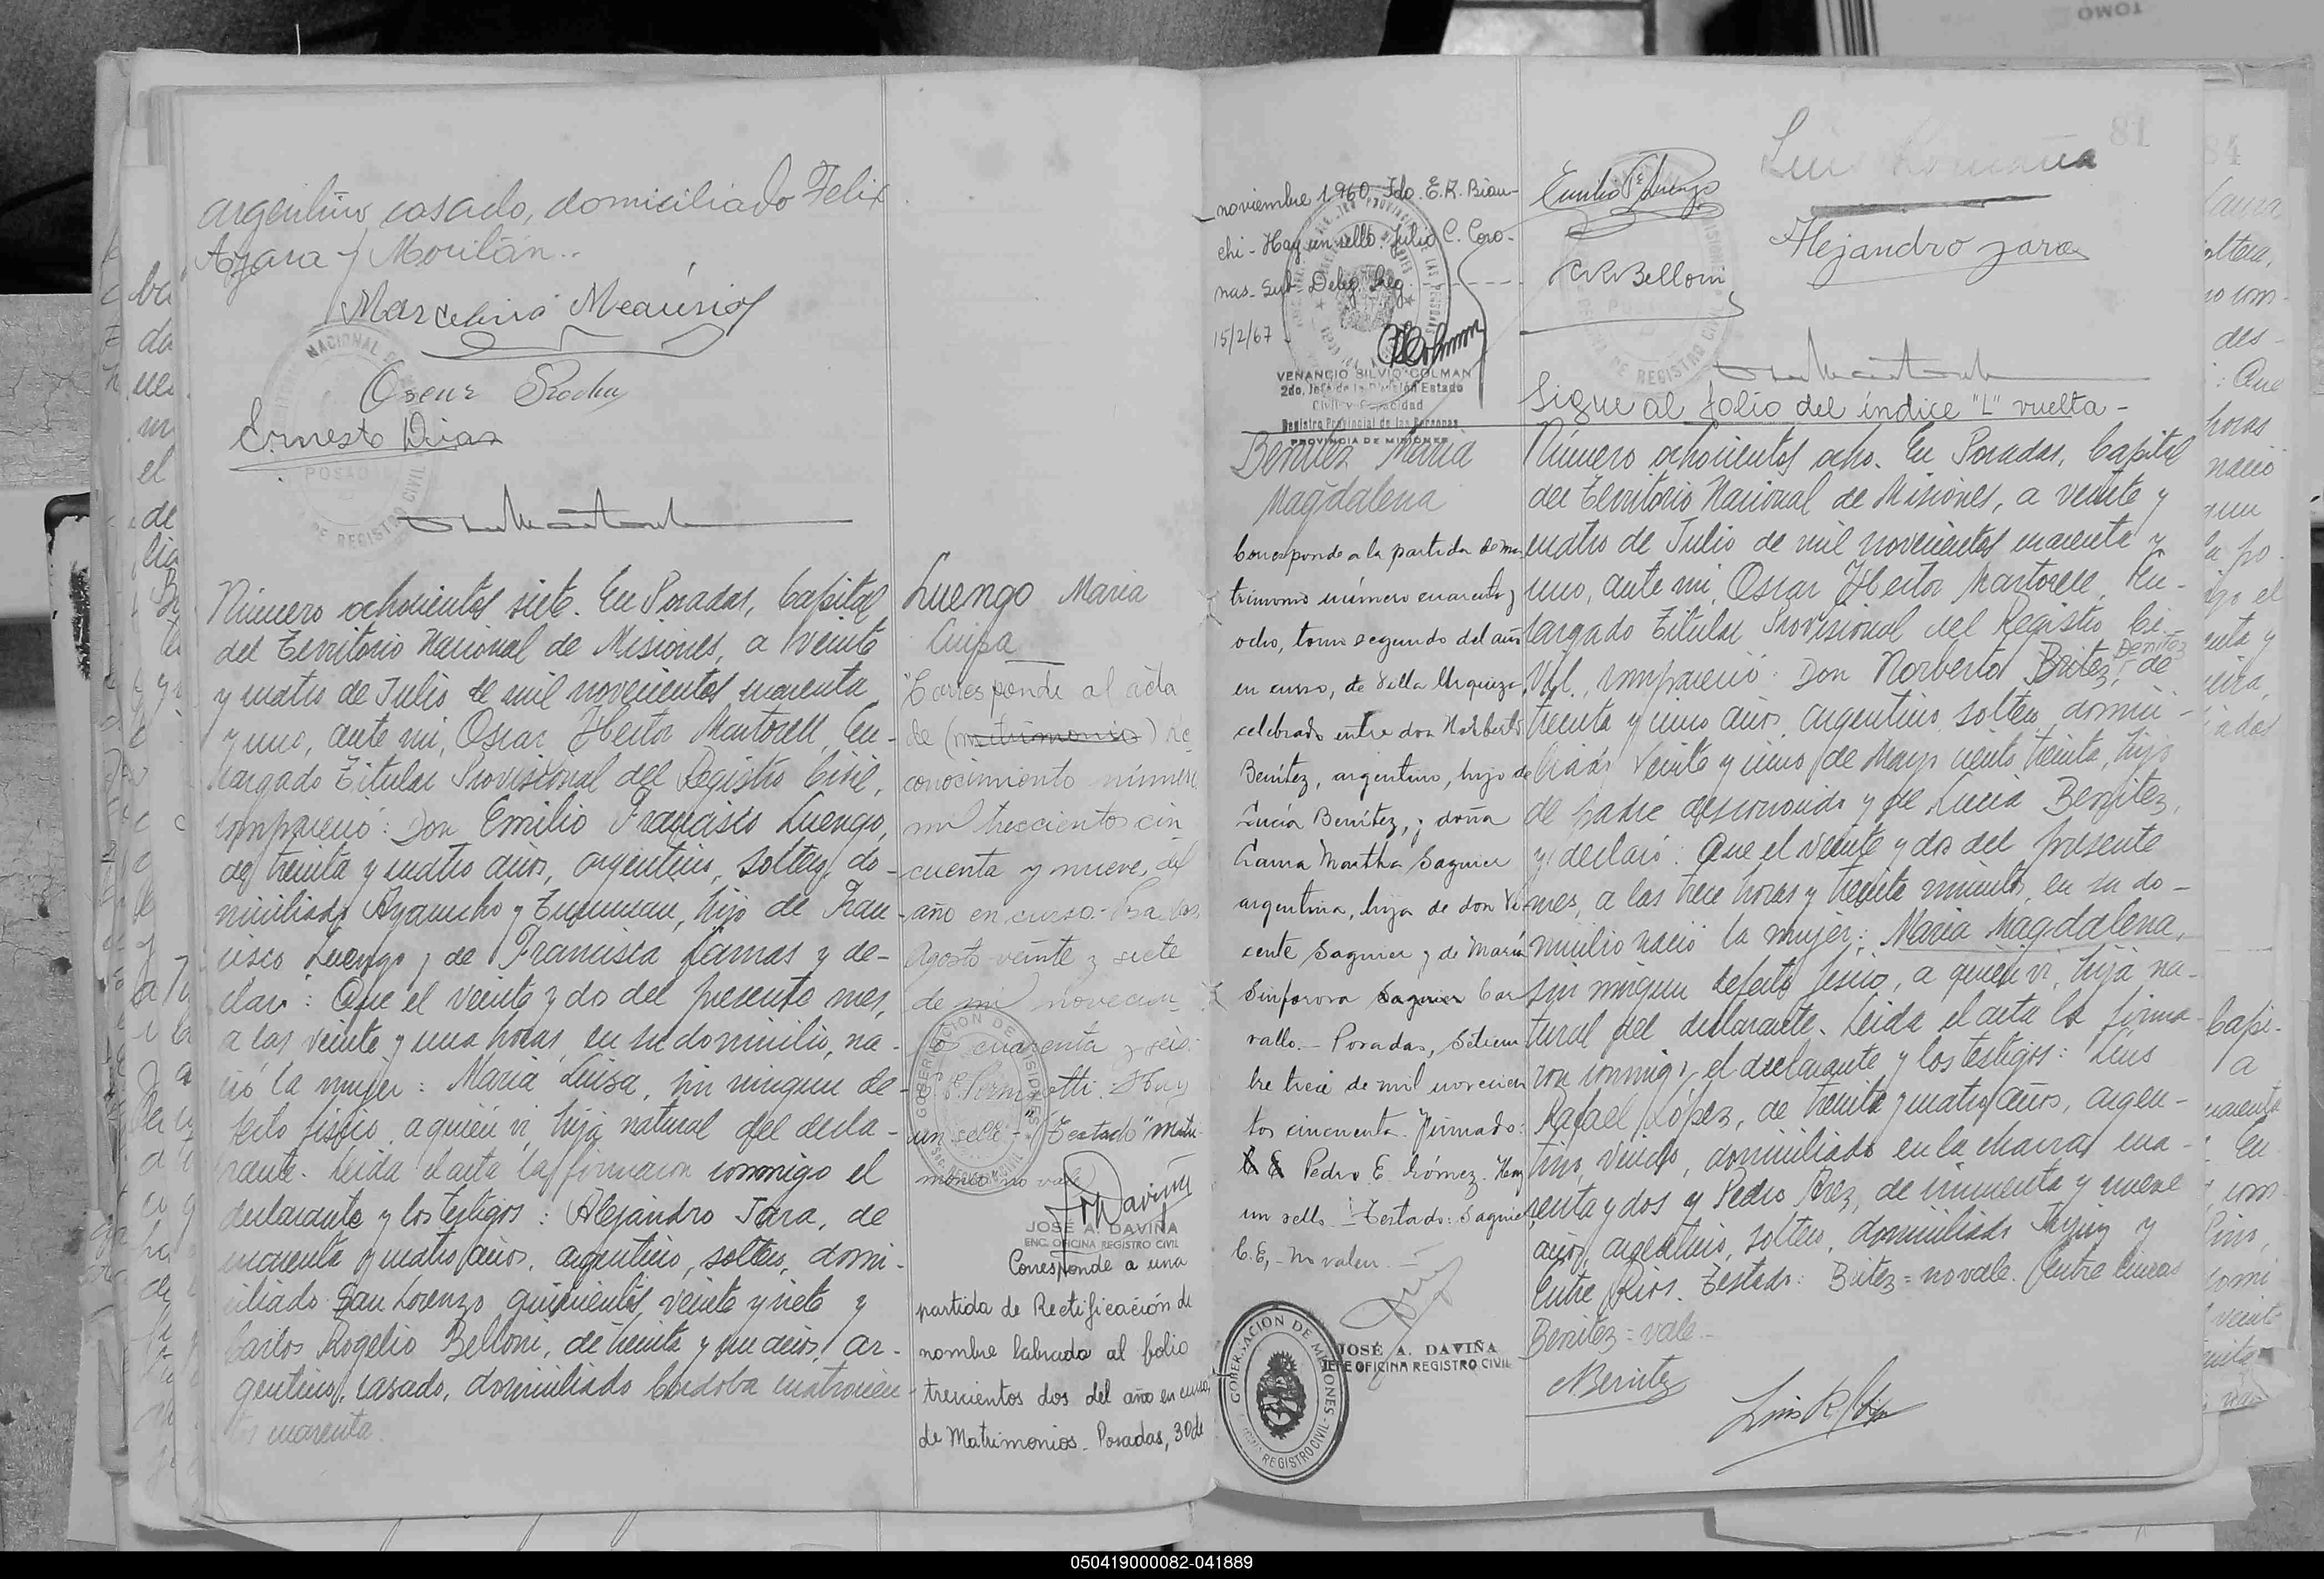 TOMO
argentino, casado, domiciliado Felix
Azara y Morilán..
Marcelino Meaurio
Oscar Rocha
Ernesto Dias
NACIONAL DE
POSADAS
DE REGISTRO CIVIL
Número ochocientos siete. En Posadas, Capital
del Territorio Nacional de Misiones, a veinte
y cuatro de Julio de mil novecientos cuarenta
y uno, ante mi, Oscar Hector Martorell, En-
cargado Titular Provisional del Registro Civil,
compareció: Don Emilio Francisco Luengo,
de treinta y cuatro años, argentino, soltero, do-
miciliado Ayacucho y Tucuman, hijo de Fran-
cisco Luengo y de Francisca Lamas y de-
claró: Que el veinte y dos del presente mes,
a las veinte y una horas, en su domicilio, na-
ció la mujer: Maria Luisa, sin ningun de-
fecto fisico, a quién vi, hija natural del decla-
rante. Leida el acta, la firmaron conmigo el
declarante y los testigos: Alejandro Jara, de
cuarenta y cuatro años, argentino, soltero, domi-
ciliado San Lorenzo quinientos veinte y siete y
Carlos Rogelio Belloni, de treinta y un años, ar-
gentino, casado, domiciliado Cordoba cuatrocien-
tos cuarenta.
Luengo Maria
Luisa
"Corresponde al acta
de (matrimonio) Re
conocimiento número
mil trescientos cin
cuenta y nueve, del
año en curso.- Posadas
Agosto veinte y siete
de mil novecien
tos cuarenta y seis
Hay
un sello - Testado "matri
monio" no vale
GOBERNACION DE MISIONES
REGISTRO CIVIL
JOSÉ A. DAVIÑA
ENC. OFICINA REGISTRO CIVIL
Corresponde a una
partida de Rectificación de
nombre labrada al folio
trescientos dos del año en curso,
de Matrimonios. Posadas, 30 de
noviembre 1960. Fdo. E.R. Bian-
chi - Hay un sello. Julio C. Coro-
nas. Sub-Deleg. Reg.
15/2/67
VENANCIO SILVIO COLMAN
2do. Jefe de la División Estado
Civil y Capacidad
Registro Provincial de las Personas
PROVINCIA DE MISIONES
81
Alejandro Jara
C R Belloni
Sigue al folio del índice "L" vuelta -
Benitez Maria
Magdalena
Corresponde a la partida de ma
trimonio número cuarenta y
ocho, tomo segundo del año
en curso, de Villa Urquiza,
celebrado entre don Norberto
Benítez, argentino, hijo de
Lucía Benítez, y doña
Laura Martha Saguier
argentina, hija de don Vi
cente Saguier y de María
Sinforosa Saguier Car
vallo.- Posadas, Setiem
bre trece de mil novecien
tos cincuenta. Firmado:
Pedro E. Gómez. Hay
un sello - Testado: Saguier
C. E, - No valen. -
GOBERNACION DE MISIONES
REGISTRO CIVIL
JOSÉ A. DAVIÑA
JEFE OFICINA REGISTRO CIVIL
Número ochocientos ocho. En Posadas, Capital
del Territorio Nacional de Misiones, a veinte y
cuatro de Julio de mil novecientos cuarenta y
uno, ante mi, Oscar Hector Martorell, En-
cargado Titular Provisional del Registro Ci-
vil, compareció: Don Norberto Britez, Benitez de
treinta y cinco años, argentino, soltero, domi-
ciliado Veinte y cinco de Mayo ciento treinta, hijo
de padre desconocido y de Lucia Benitez,
y declaró: Que el veinte y dos del presente
mes, a las trece horas y treinta minutos, en su do-
micilio nació la mujer: Maria Magdalena,
sin ningun defecto fisico, a quién vi, hija na-
tural del declarante. Leida el acta la firma-
ron conmigo, el declarante y los testigos: Luis
Rafael López, de treinta y cuatro años, argen-
tino, viudo, domiciliado en la chacra cua-
renta y dos y Pedro Perez, de cincuenta y nueve
años, argentino, soltero, domiciliado Jujuy y
Entre Rios. Testado: Britez = no vale. Entre lineas
Benitez = vale.-
NBenitez
Luis R López
84
050419000082-041889